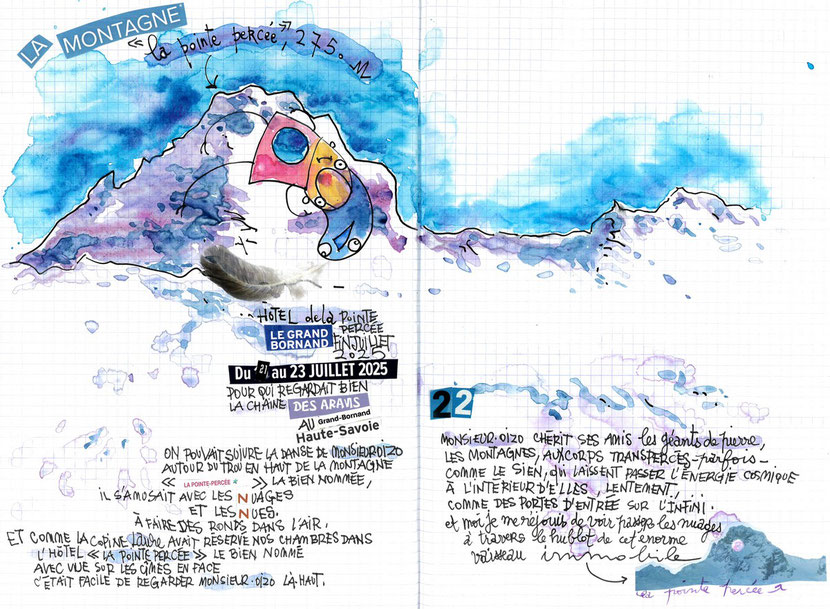 LA MONTAGNE
« la pointe percée », 275. M
HÔTEL de la POINTE
PERCÉE
LE GRAND
BORNAND
EN JUILLET
2025
Du 21 au 23 JUILLET 2025
POUR QUI REGARDAIT BIEN
LA CHAÎNE DES ARAVIS
AU Grand-Bornand
Haute-Savoie
ON POUVAIT SUIVRE LA DANSE DE MONSIEUR OIZO
AUTOUR DU TROU EN HAUT DE LA MONTAGNE
« LA POINTE-PERCÉE » LA BIEN NOMMÉE,
IL S'AMUSAIT AVEC LES NUAGES
ET LES NUES.
À FAIRE DES RONDS DANS L'AIR.
ET COMME LA COPINE Laure AVAIT RÉSERVÉ NOS CHAMBRES DANS
L'HÔTEL « LA POINTE PERCÉE » LE BIEN NOMMÉ
AVEC VUE SUR LES CÎMES EN FACE
C'ÉTAIT FACILE DE REGARDER MONSIEUR.OIZO LÀ HAUT.
22
MONSIEUR.OIZO CHÉRIT SES AMIS les géants de pierre,
LES MONTAGNES, AUX CORPS TRANSPERCÉS - parfois -
COMME LE SIEN, qui LAISSENT PASSER L'ÉNERGIE COSMIQUE
À L'INTÉRIEUR D'ELLES, LENTEMENT,
COMME DES PORTES D'ENTRÉE SUR L'INFINI.
et moi je me réjouis de voir passer les nuages
à travers le hublot de cet énorme
vaisseau immobile
la pointe percée